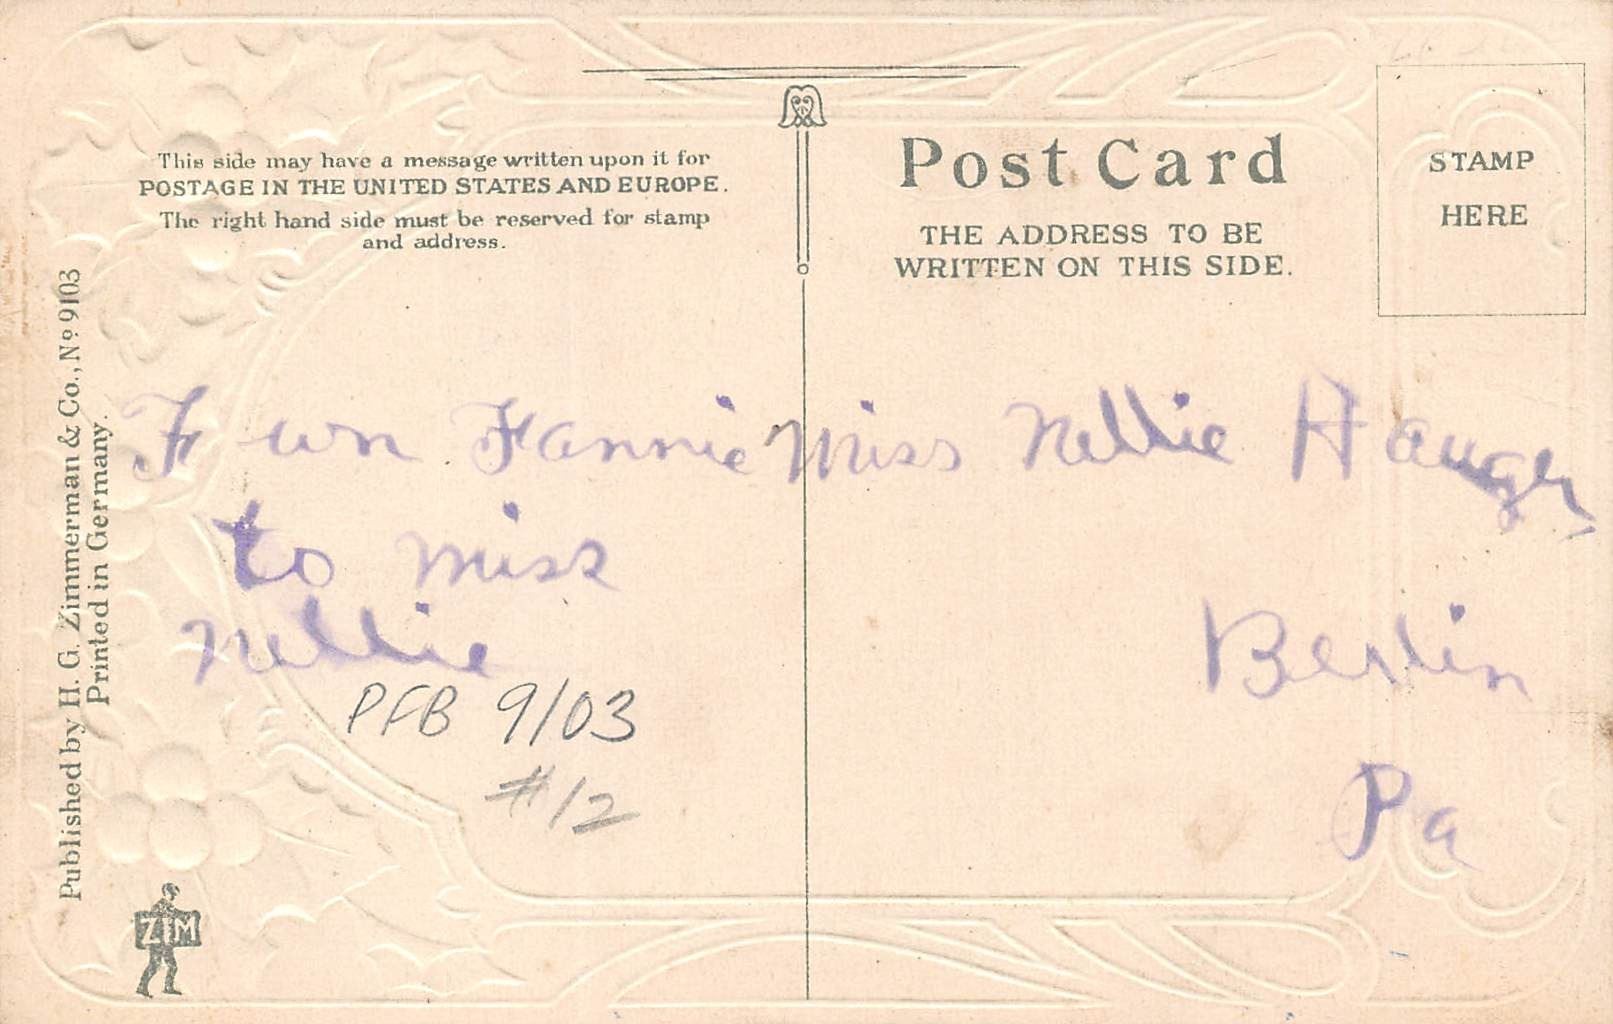 This side may have a message written upon it for
POSTAGE IN THE UNITED STATES AND EUROPE.
The right hand side must be reserved for stamp
and address.
Post Card
THE ADDRESS TO BE
WRITTEN ON THIS SIDE.
STAMP
HERE
Published by H. G. Zimmerman & Co., No 9103
Printed in Germany.
Fannie
to miss
nellie
PFB 9/03
#12
ZIM
Miss Nellie Hauger
Berlin
Pa